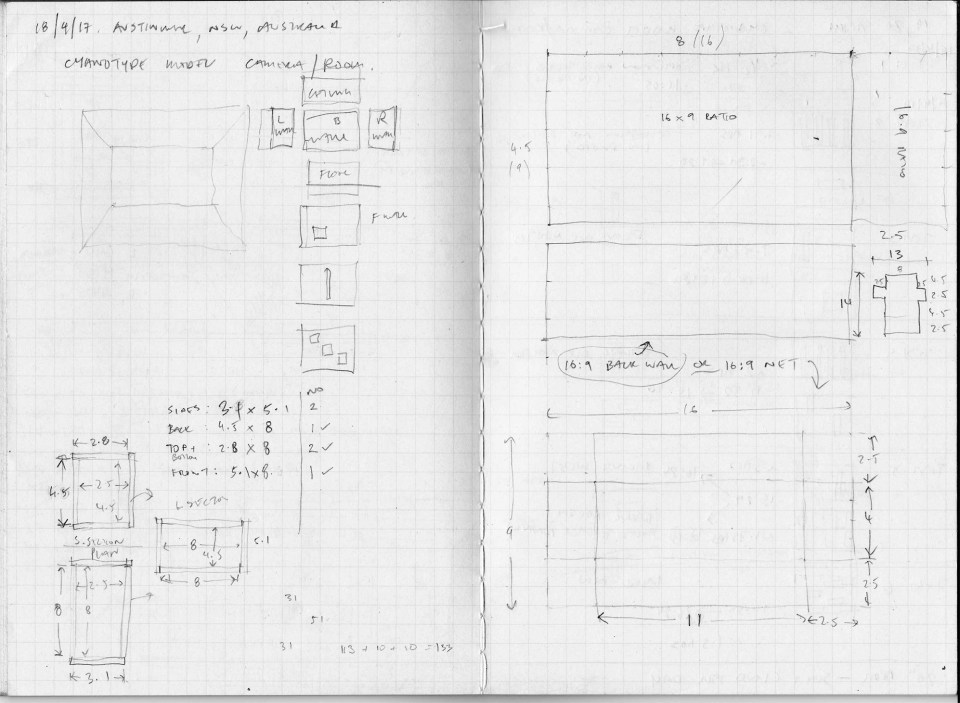 18/9/17. AUSTINMER, NSW, AUSTRALIA
CYANOTYPE MODEL CAMERA/ROOM.
CEILING
L WALL
B WALL
R WALL
FLOOR
NO
SIDES : 3.1 x 5.1 2
BACK : 4.5 x 8 1 ✓
TOP + BOTTOM : 2.8 x 8 2 ✓
FRONT : 5.1 x 8. 1 ✓
2.8
4.5
2.5
4.5
S. SECTION
PLAN
2.5
8
8
3.1
L. SECTION
8
4.5
5.1
8
31
51
31
113 + 10 + 10 = 133
8 (16)
16 x 9 RATIO
4.5
(9)
2.5
13
8
2.5
2.5
4.5
2.5
4.5
2.5
14
16:9 BACK WALL OR 16:9 NET
16
9
2.5
4
2.5
11
2.5